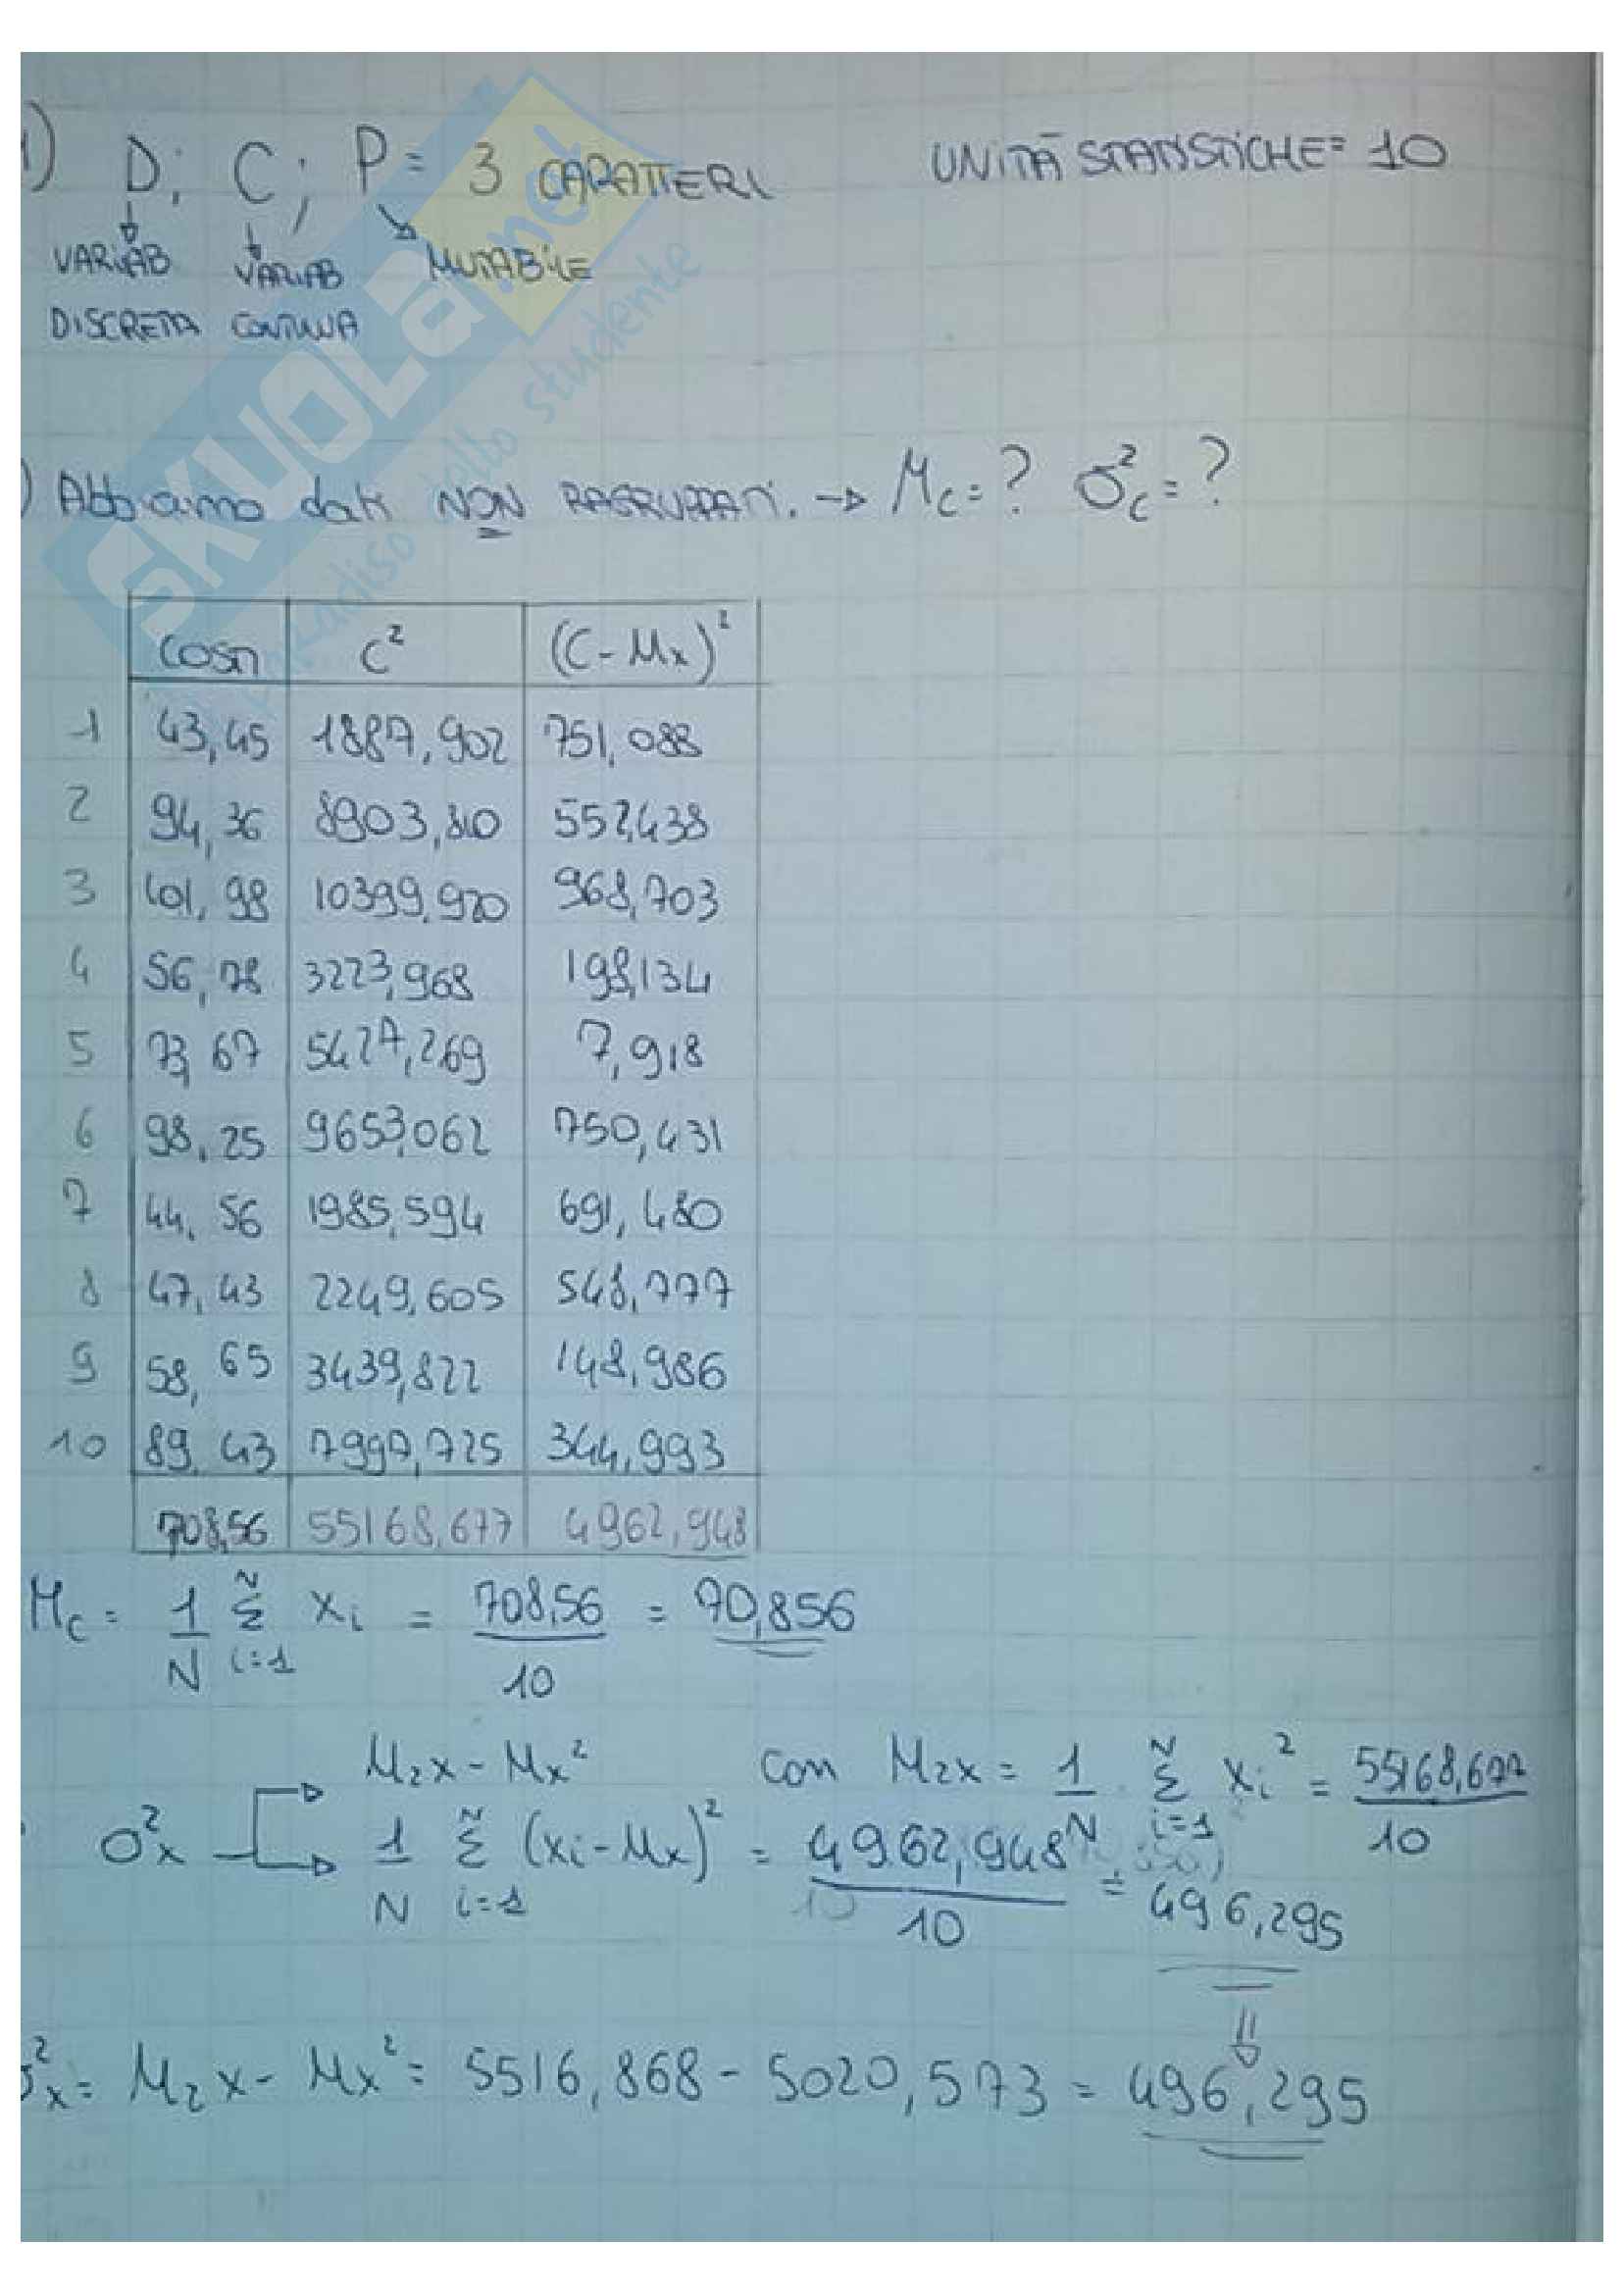 1) D; C; P = 3 CARATTERI UNITÀ STATISTICHE = 10
VARIAB VARIAB MUTABILE
DISCRETA CONTINUA
) Abbiamo dati NON RAGRUPPATI. → Mc = ? σ²c = ?
COSTI C² (C-Mx)²
1 43,45 1887,902 751,088
2 94,36 8903,810 552,438
3 101,98 10399,920 968,703
4 56,78 3223,968 198,134
5 73,67 5427,269 7,918
6 98,25 9653,062 750,431
7 44,56 1985,594 691,480
8 47,43 2249,605 548,777
9 58,65 3439,822 148,986
10 89,43 7997,725 344,993
708,56 55168,677 4962,948
Mc = 1/N Σ i=1 N xi = 708,56/10 = 70,856
M2x - Mx² con M2x = 1/N Σ i=1 N xi² = 55168,677/10
σ²x 1/N Σ i=1 N (xi - Mx)² = 4962,948/10 = 496,295
σ²x = M2x - Mx² = 5516,868 - 5020,573 = 496,295
SKUOLA.net
paradiso dello studente